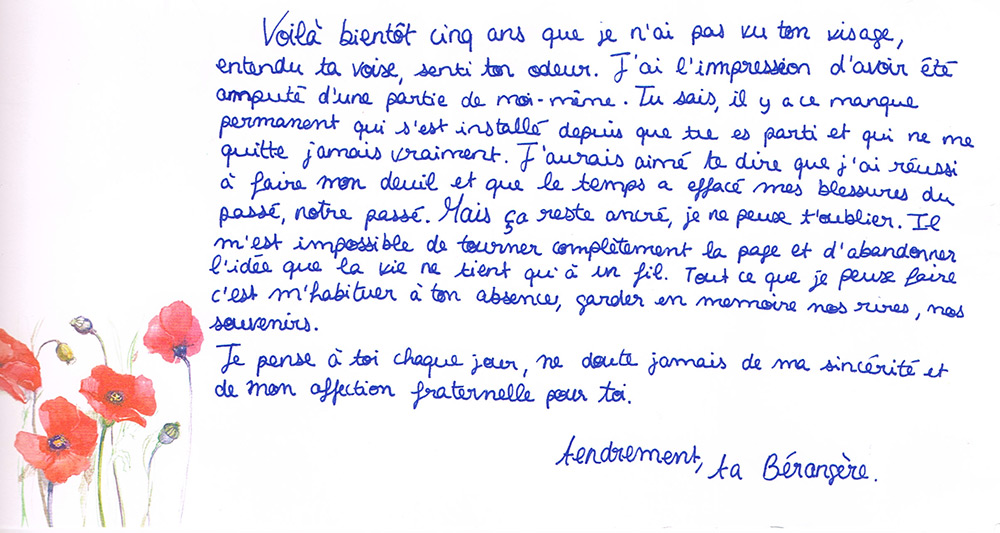 Voilà bientôt cinq ans que je n'ai pas vu ton visage,
entendu ta voise, senti ton odeur. J'ai l'impression d'avoir été
amputé d'une partie de moi-même. Tu sais, il y a ce manque
permanent qui s'est installé depuis que tu es parti et qui ne me
quitte jamais vraiment. J'aurais aimé te dire que j'ai réussi
à faire mon deuil et que le temps a effacé mes blessures du
passé, notre passé. Mais ça reste ancré, je ne peux t'oublier. Il
m'est impossible de tourner complètement la page et d'abandonner
l'idée que la vie ne tient qu'à un fil. Tout ce que je peux faire
c'est m'habituer à ton absence, garder en memoire nos rires, nos
souvenirs.
Je pense à toi chaque jour, ne doute jamais de ma sincérité et
de mon affection fraternelle pour toi.
tendrement, ta Bérangère.